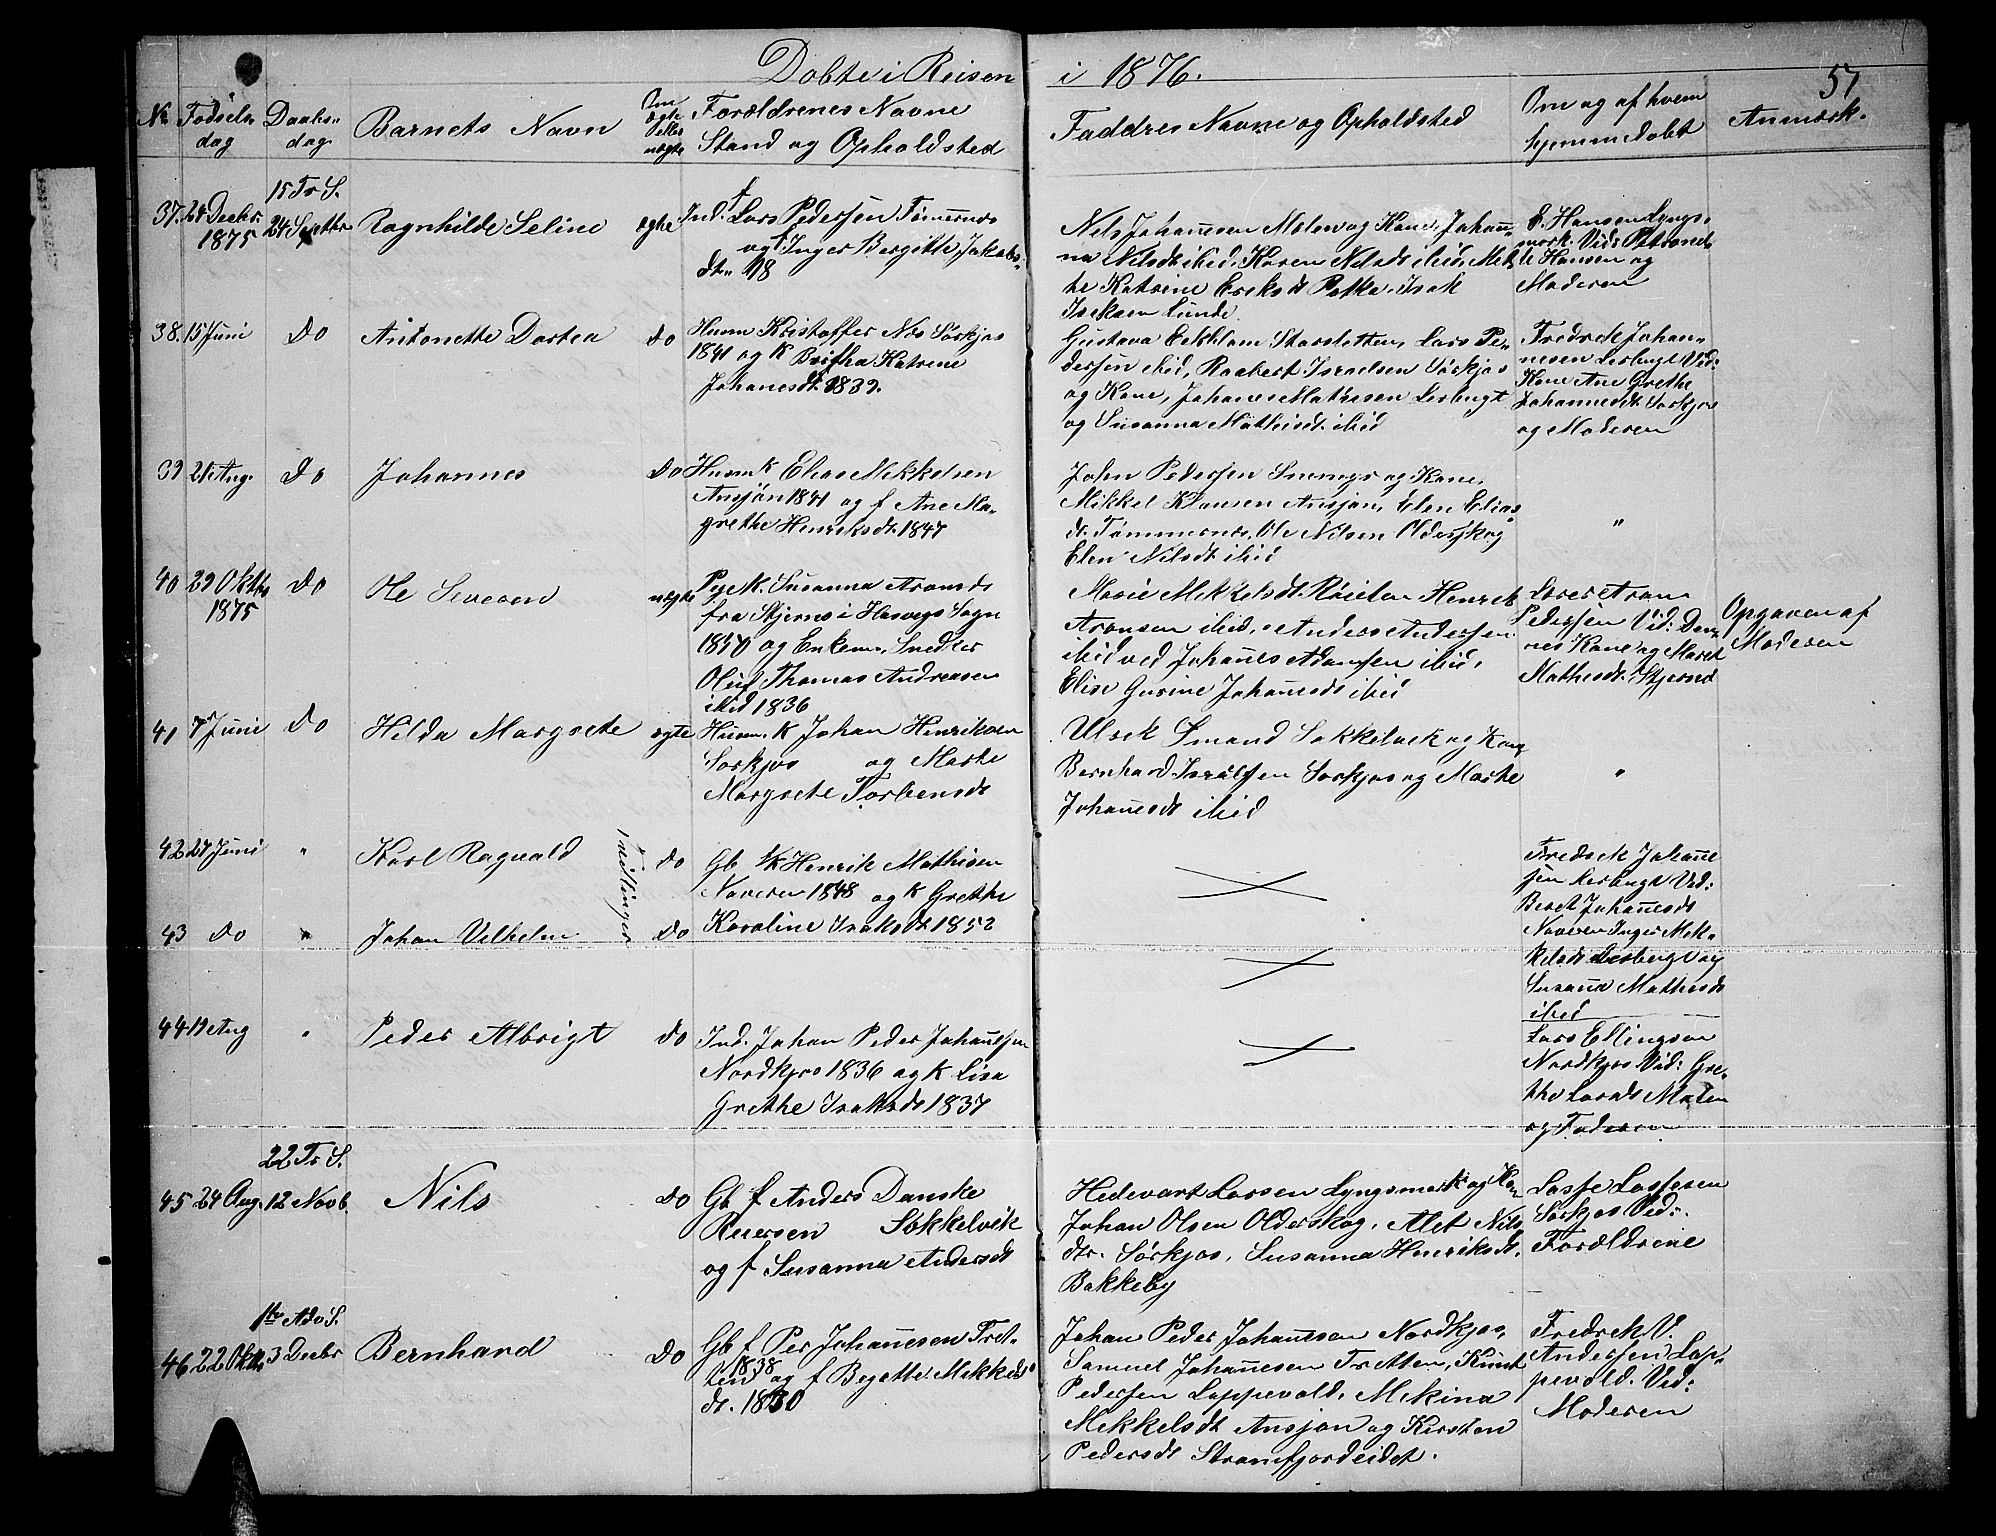 Døbte i Reisen i 1876.
51
No
Fødsels
dag
Daabs-
dag
Barnets Navn
Om
ægte
eller
uægte
Forældrenes Navne
Stand og Opholdsted
Faddres Navne og Opholdsted
Om og af hvem
hjemmedøbt
Anmærk.
15 Tr S.
37. 24 Decbr.
1875
24 Septbr.
Ragnhilde Seline
ægte
Ind. f Lars Pedersen Tømernes
og f Inger Bergitte Jakobs-
dt. 18
Nils Johannesen Molen og Kone, Johan-
na Nilsdt ibid, Karen Nilsdt ibid, Met-
the Katrine Eriksdt Potka, Isak
Isaksen Lunde.
E. Hansen Lyngs-
mark. Vid: Petronel-
le Hansen og
Moderen
38. 15 Juni
Do
Antonette Dortea
Do
Husm Kristoffer Nils Sørkjos
1841 og K Britha Katrine
Johanesdt. 1839.
Gustava Storsletten, Lars Pe-
dersen ibid, Raabert Israelsen Sørkjos
og Kone, Johanes Mathisen Lerbugt
og Susanna Mathisdt. ibid
Fredrik Johan-
nesen Lerbugt Vid:
Kone Ane Grethe
Johannesdt. Sørkjos
og Moderen
39 21 Aug.
Do
Johannes
Do
Husm K Elias Mikkelsen
Ansjøn 1841 og f Ane Ma-
grethe Henriksdt. 1847
John Pedersen og Kone,
Mikkel Klausen Ansjøn, Elen Elias
dt. Tømmernes, Ole Nilsen Olderskog
Elen Nilsdt ibid
"
40 29 Oktbr
1875
Do
Ole Severen
uægte
Pige K. Susanna Aronsdt
fra Stjernø i Hasvigs Sogn
1840 og Enkem. Snedker
Oluf Thomas Andreasen
ibid 1836
Marie Mikkelsdt. Røielen Henrik
Aronsen ibid, Anders Andersen
ibid ved Johanes Adamsen ibid,
Elise Gurine Johanesdt ibid
Lærer Aron
Pedersen Vid: Den-
nes Kone og Maret
Mathisdt. Stjernø
Opgaven af
Moderen
41 7 Juni
Do
Hilda Margrete
ægte
Husm. K Johan Henriksen
Sørkjos og Marthe
Margrete Torbensdt
Ulrik Smand Søkkelvik og Kone
Bernhard Israelsen Sørkjos og Marthe
Johanesdt ibid
"
42 27 Juni
"
Karl Ragvald
Tvillinger
Do
Gb K Henrik Mathisen
Naveren 1848 og K Grethe
Karoline Isaksdt. 1852
Fredrik Johane
sen Lerbugt Vid:
Beret Johanesdt
Naveren Inger Mik-
kelsdt Lerbugt og
Susanna Mathisdt
ibid
43 Do
"
Johan Vilhelm
Do
44 19 Aug
"
Peder Albrigt
Do
Ind. Johan Peder Johannesen
Nordkjos 1836 og K Lisa
Grethe Isaksdt 1837
Lars Ellingsen
Nordkjos Vid: Gre-
the Larsdt Molen
og Faderen
22 Tr S.
45 24 Aug. 12 Novb.
Nils
Do
Gb f Anders Danske
Søkkelvik
og f Susanna Andersdt
Hedevart Larsen Lyngsmark og Kone
Johan Olsen Olderskog, Alet Nils
dtr. Sørkjos, Susanna Henriksdt.
Bakkeby
Lasse Lassesen
Sørkjos Vid:
Forældrene
1ste Adv S.
46 22 Oktbr 3 Decbr
Bernhard
Do
Gb f Per Johanesen Tret-
ten 1838 og f Begette Mikkels
dt. 1830
Johan Peder Johannesen Nordkjos,
Samuel Johannesen Tretten, Knut
Pedersen Lappevold, Mekina
Mikkelsdt Ansjøn og Kirsten
Pedersdt Stramfjordeidet.
Fredrik V.
Andersen Lap-
pevold. Vid:
Moderen